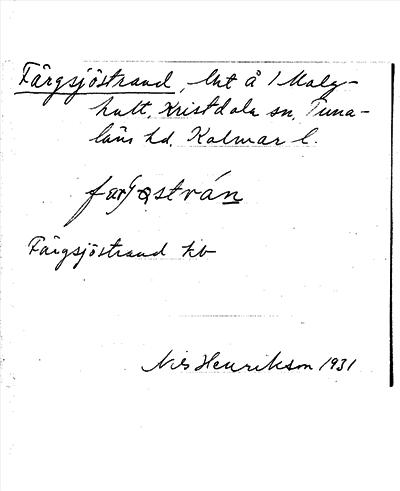 Färgsjöstrand, lht å 1 Måly-
hult, Kristdala sn, Tuna-
läns hd, Kalmar l.
Färgsjöstrand kb
Nils Henrikson 1931